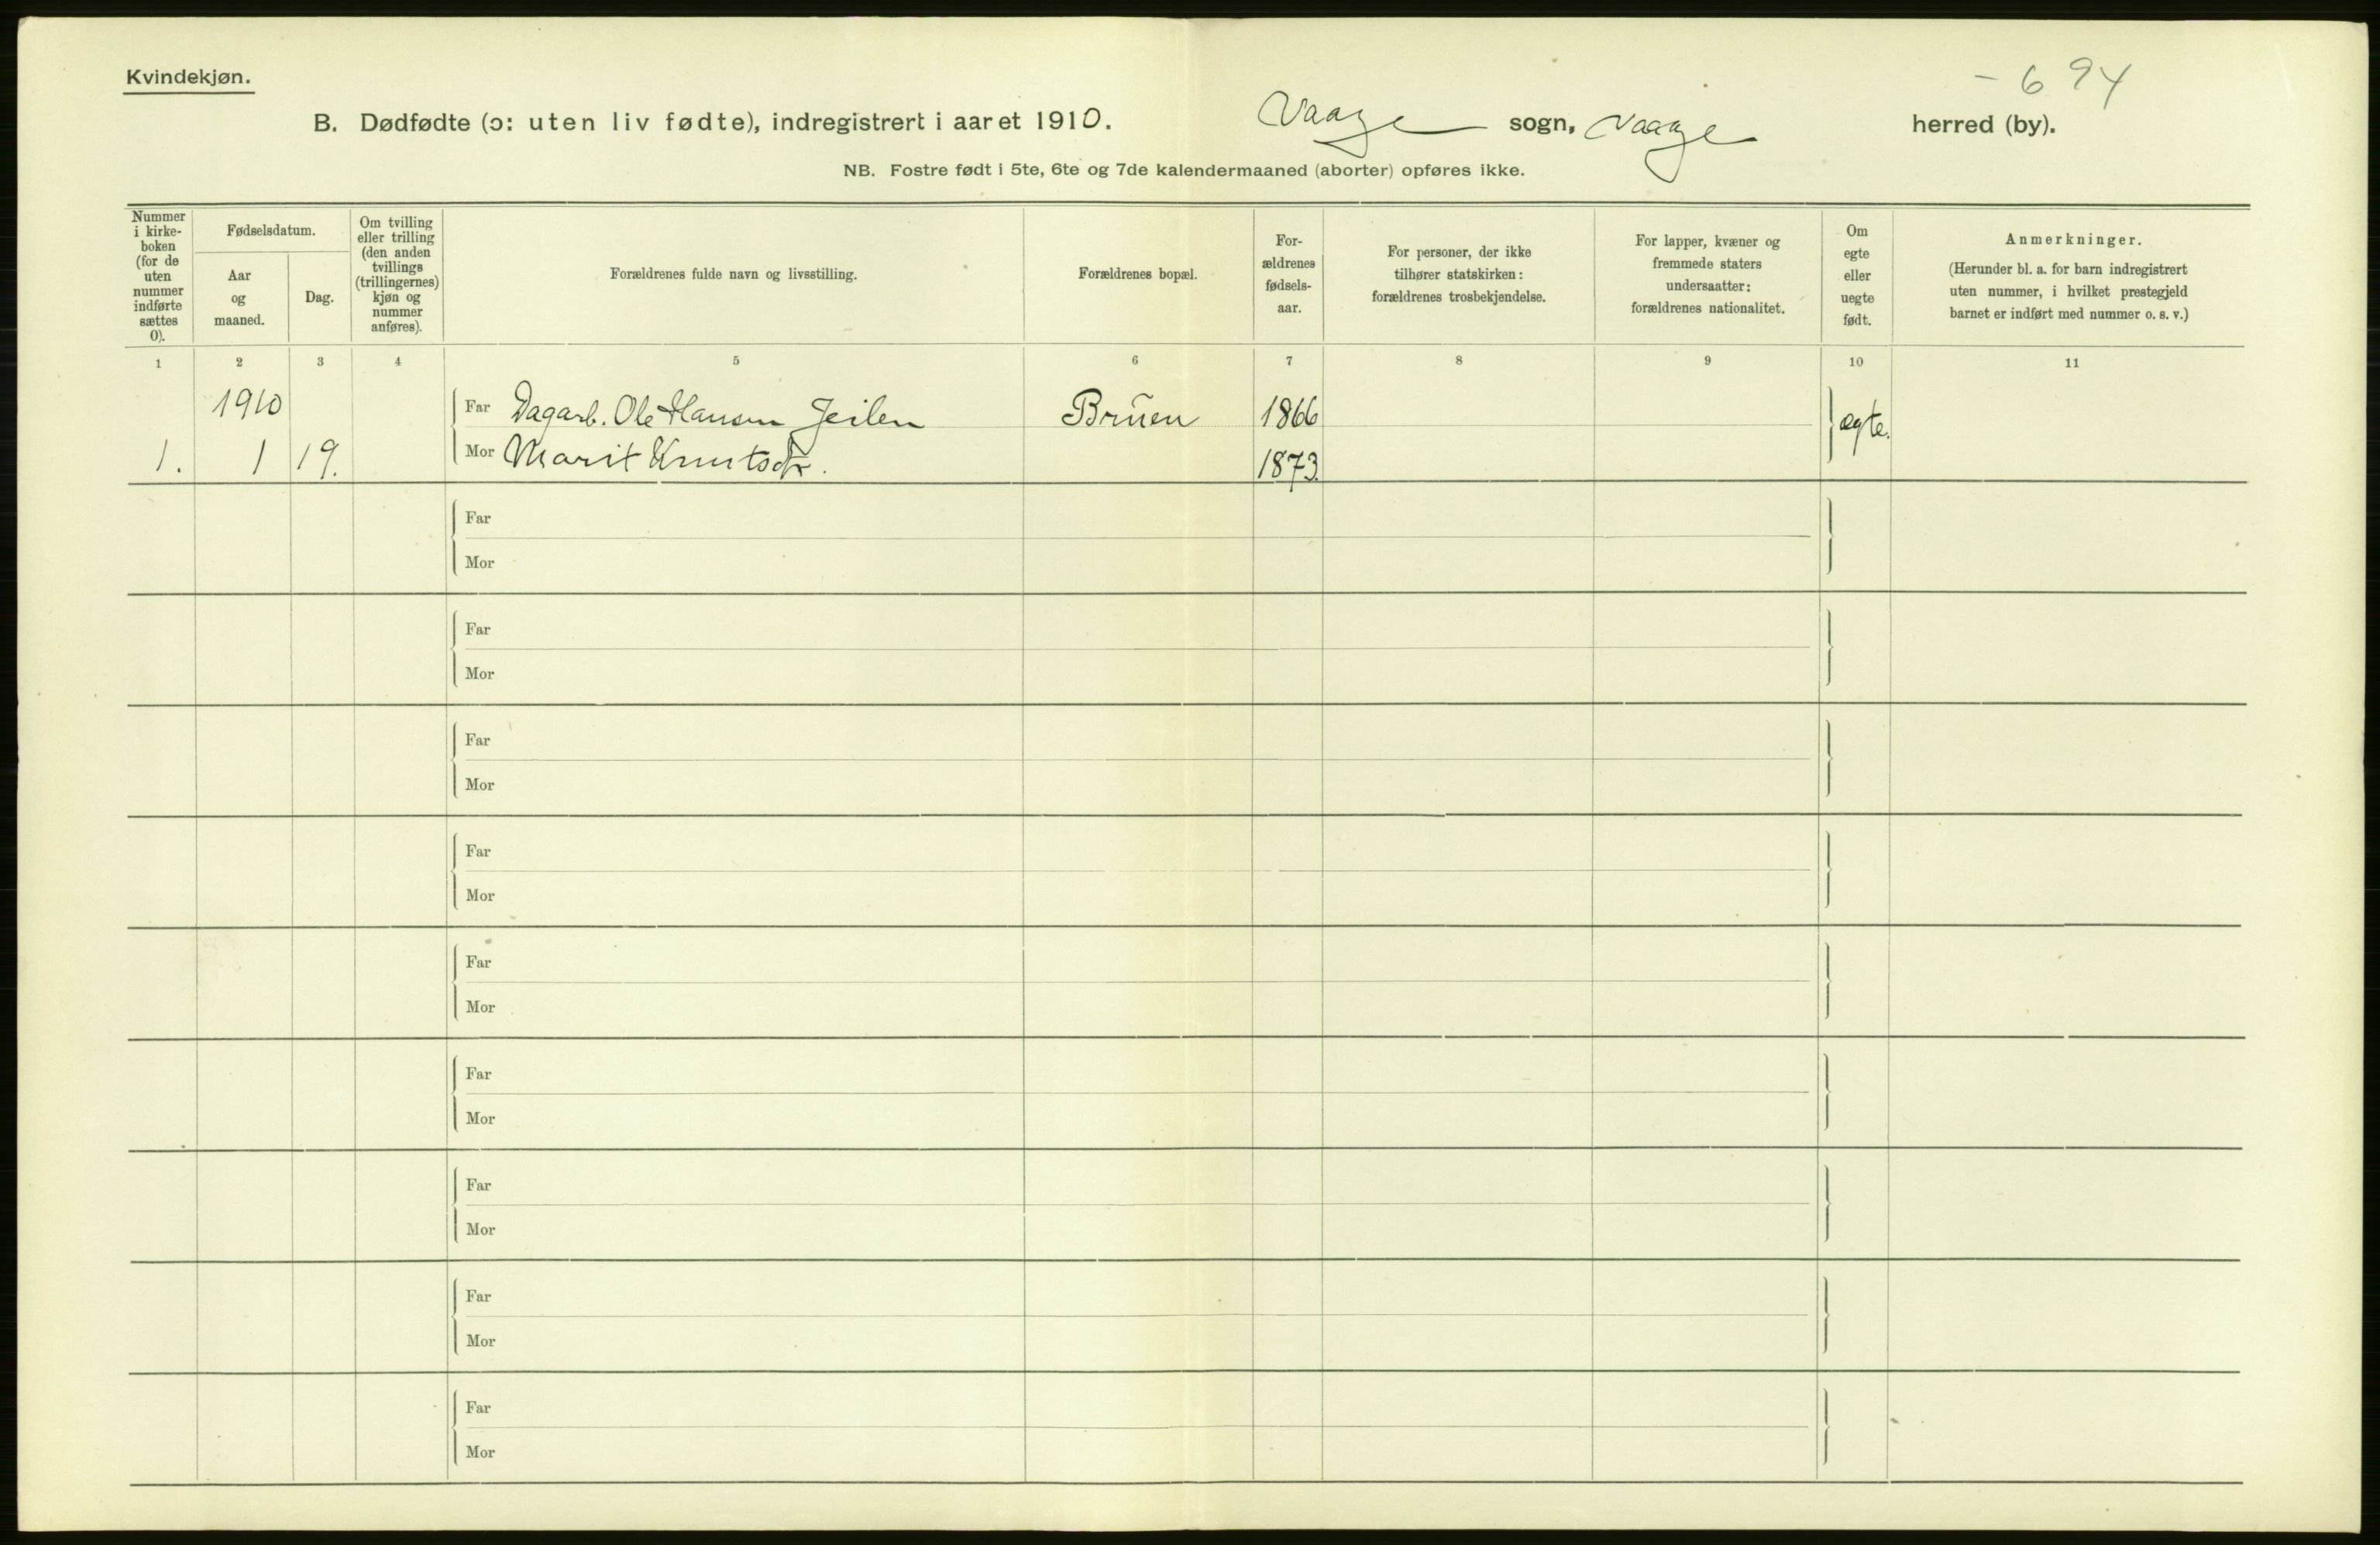 Kvindekjøn.
- 694
B. Dødfødte (ɔ: uten liv fødte), indregistrert i aaret 1910. Vaage sogn, Vaage herred (by).
NB. Fostre født i 5te, 6te og 7de kalendermaaned (aborter) opføres ikke.
Nummer
i kirke-
boken
(for de
uten
nummer
indførte
sættes
0).
Fødselsdatum.
Aar
og
maaned.
Dag.
Om tvilling
eller trilling
(den anden
tvillings
(trillingernes)
kjøn og
nummer
anføres).
Forældrenes fulde navn og livsstilling.
Forældrenes bopæl.
For-
ældrenes
fødsels-
aar.
For personer, der ikke
tilhører statskirken:
forældrenes trosbekjendelse.
For lapper, kvæner og
fremmede staters
undersaatter:
forældrenes nationalitet.
Om
egte
eller
uegte
født.
Anmerkninger.
(Herunder bl. a. for barn indregistrert
uten nummer, i hvilket prestegjeld
barnet er indført med nummer o. s. v.)
1 2 3 4 5 6 7 8 9 10 11
1910 Far Dagarb. Ole Hansen Jeilen Bruen 1866 ægte.
1. 1 19. Mor Marit Knutsdtr. 1873.
Far
Mor
Far
Mor
Far
Mor
Far
Mor
Far
Mor
Far
Mor
Far
Mor
Far
Mor
Far
Mor